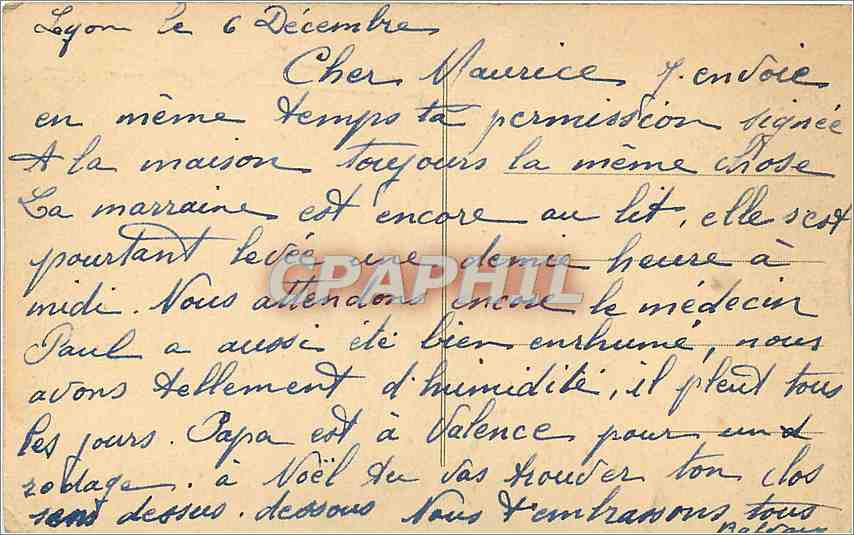 Lyon le 6 Décembre
Cher Maurice j. envoie
en même temps ta permission signée
A la maison toujours la même chose
La marraine est encore au lit, elle s'est
pourtant levée une demie heure à
midi. Nous attendons encore le médecin
Paul a aussi été bien enrhumé, nous
avons tellement d'humidité, il pleut tous
les jours. Papa est à Valence pour un
rodage. à Noël tu vas trouver ton clos
sens dessus. dessous Nous t'embrassons tous
CPAPHIL